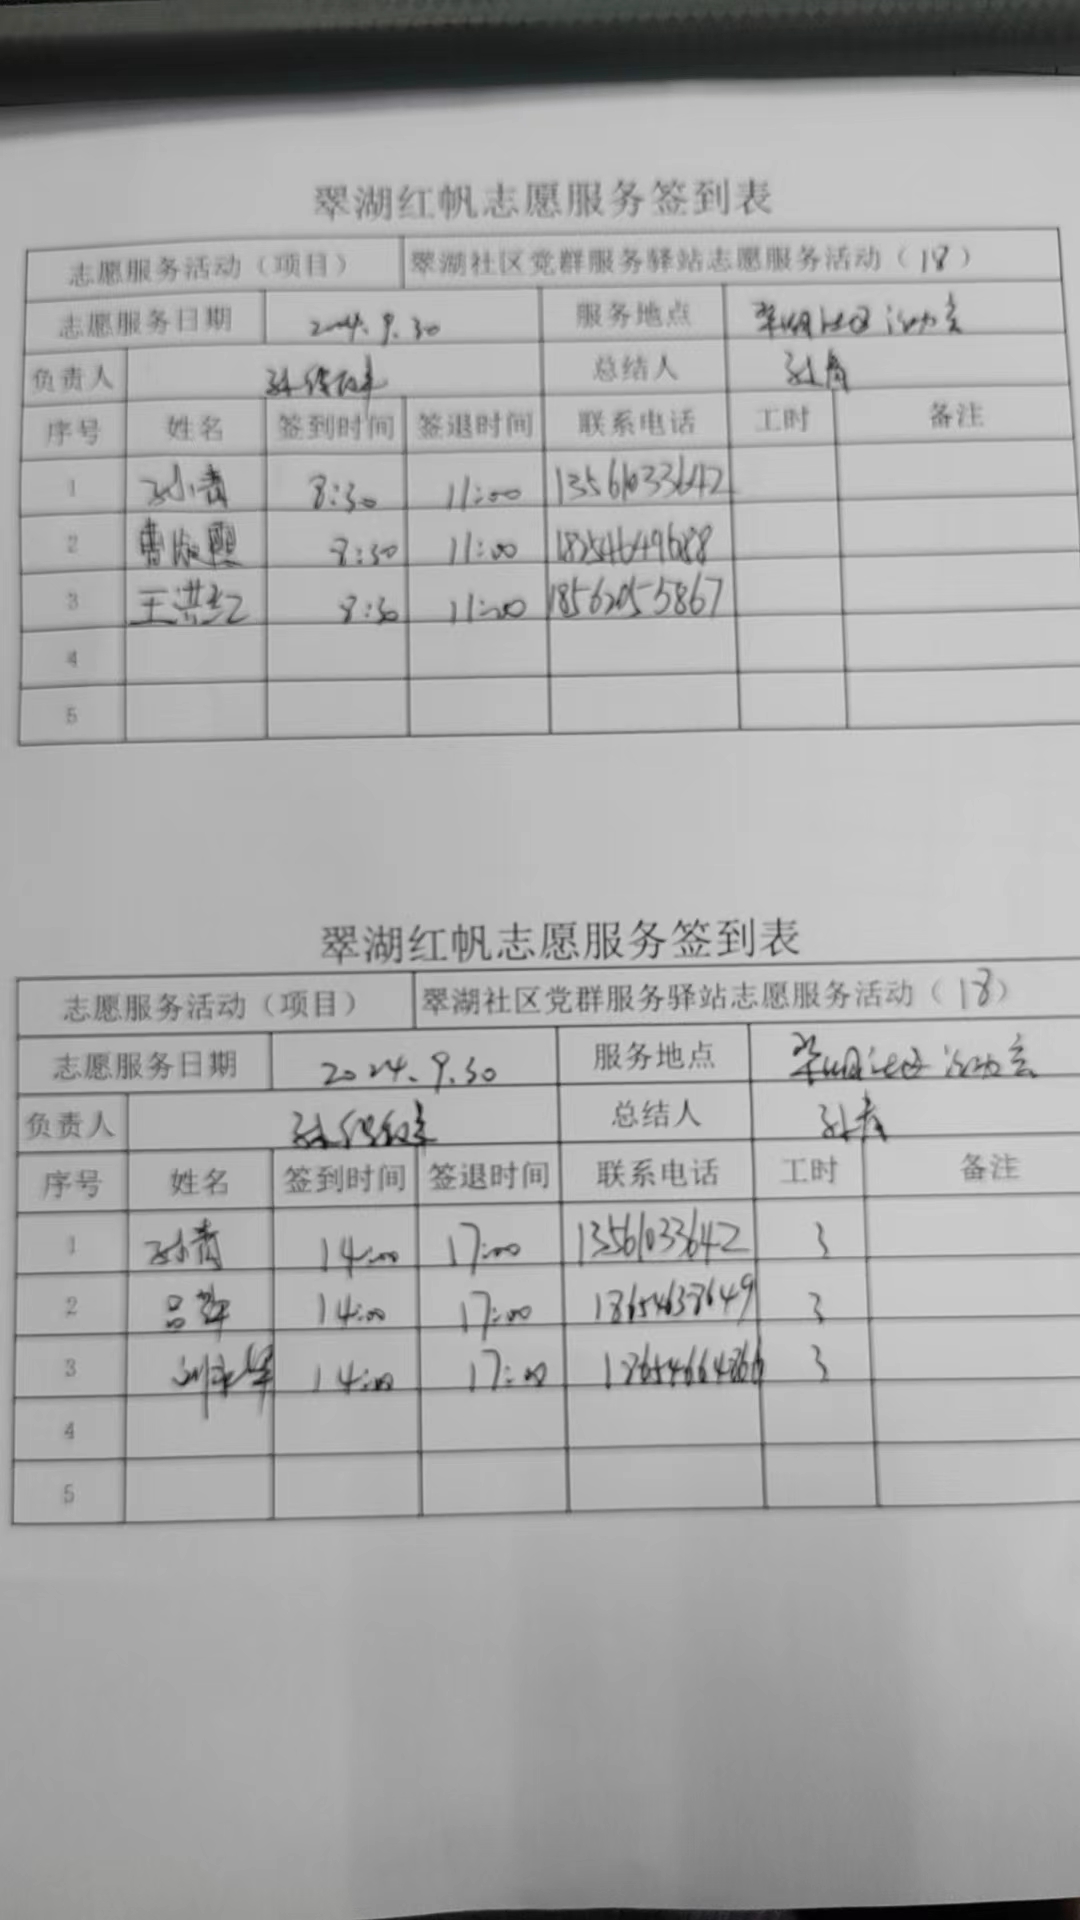 翠湖红帆志愿服务签到表
志愿服务活动（项目） 翠湖社区党群服务驿站志愿服务活动（18）
志愿服务日期 2024.9.30 服务地点 翠湖社区活动室
负责人 总结人 孙青
序号 姓名 签到时间 签退时间 联系电话 工时 备注
1 孙青 8:30 11:00 13561033642
2 8:30 11:00 18254649688
3 王洪红 8:30 11:00 18562055867
4
5
翠湖红帆志愿服务签到表
志愿服务活动（项目） 翠湖社区党群服务驿站志愿服务活动（18）
志愿服务日期 2024.9.30 服务地点 翠湖社区活动室
负责人 总结人 孙青
序号 姓名 签到时间 签退时间 联系电话 工时 备注
1 孙青 14:00 17:00 13561033642 3
2 14:00 17:00 18654638649 3
3 14:00 17:00 18654664866 3
4
5